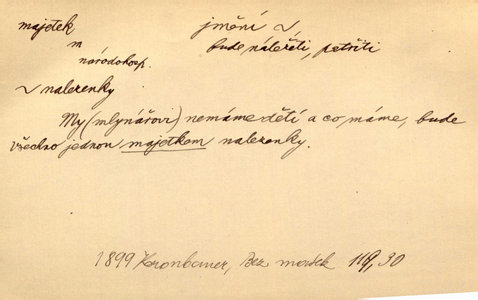 majetek
m
národohosp.
jmění ~
bude náležeti, patřiti
~ nalezenky
My (mlynářovi) nemáme dětí a co máme, bude
všechno jednou majetkem nalezenky.
1899 Kronbauer, Bez masek 119, 30